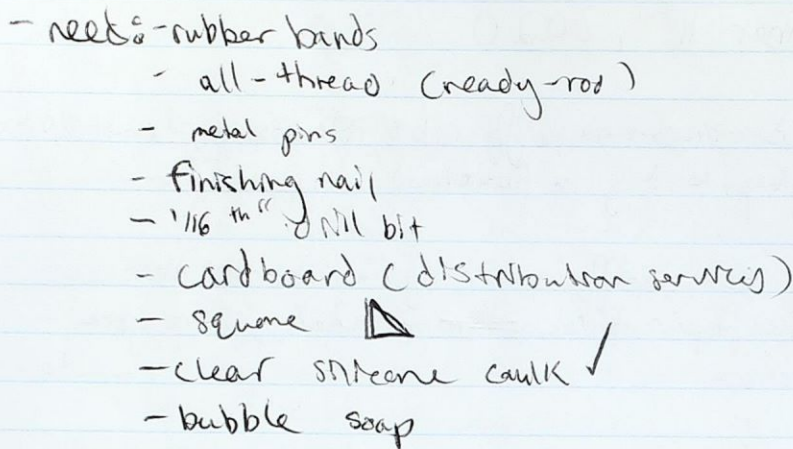 - need: - rubber bands
- all-thread (ready-rod)
- metal pins
- finishing nail
- 1/16 th" drill bit
- cardboard (distribution services)
- square
- clear silicone caulk ✓
- bubble soap